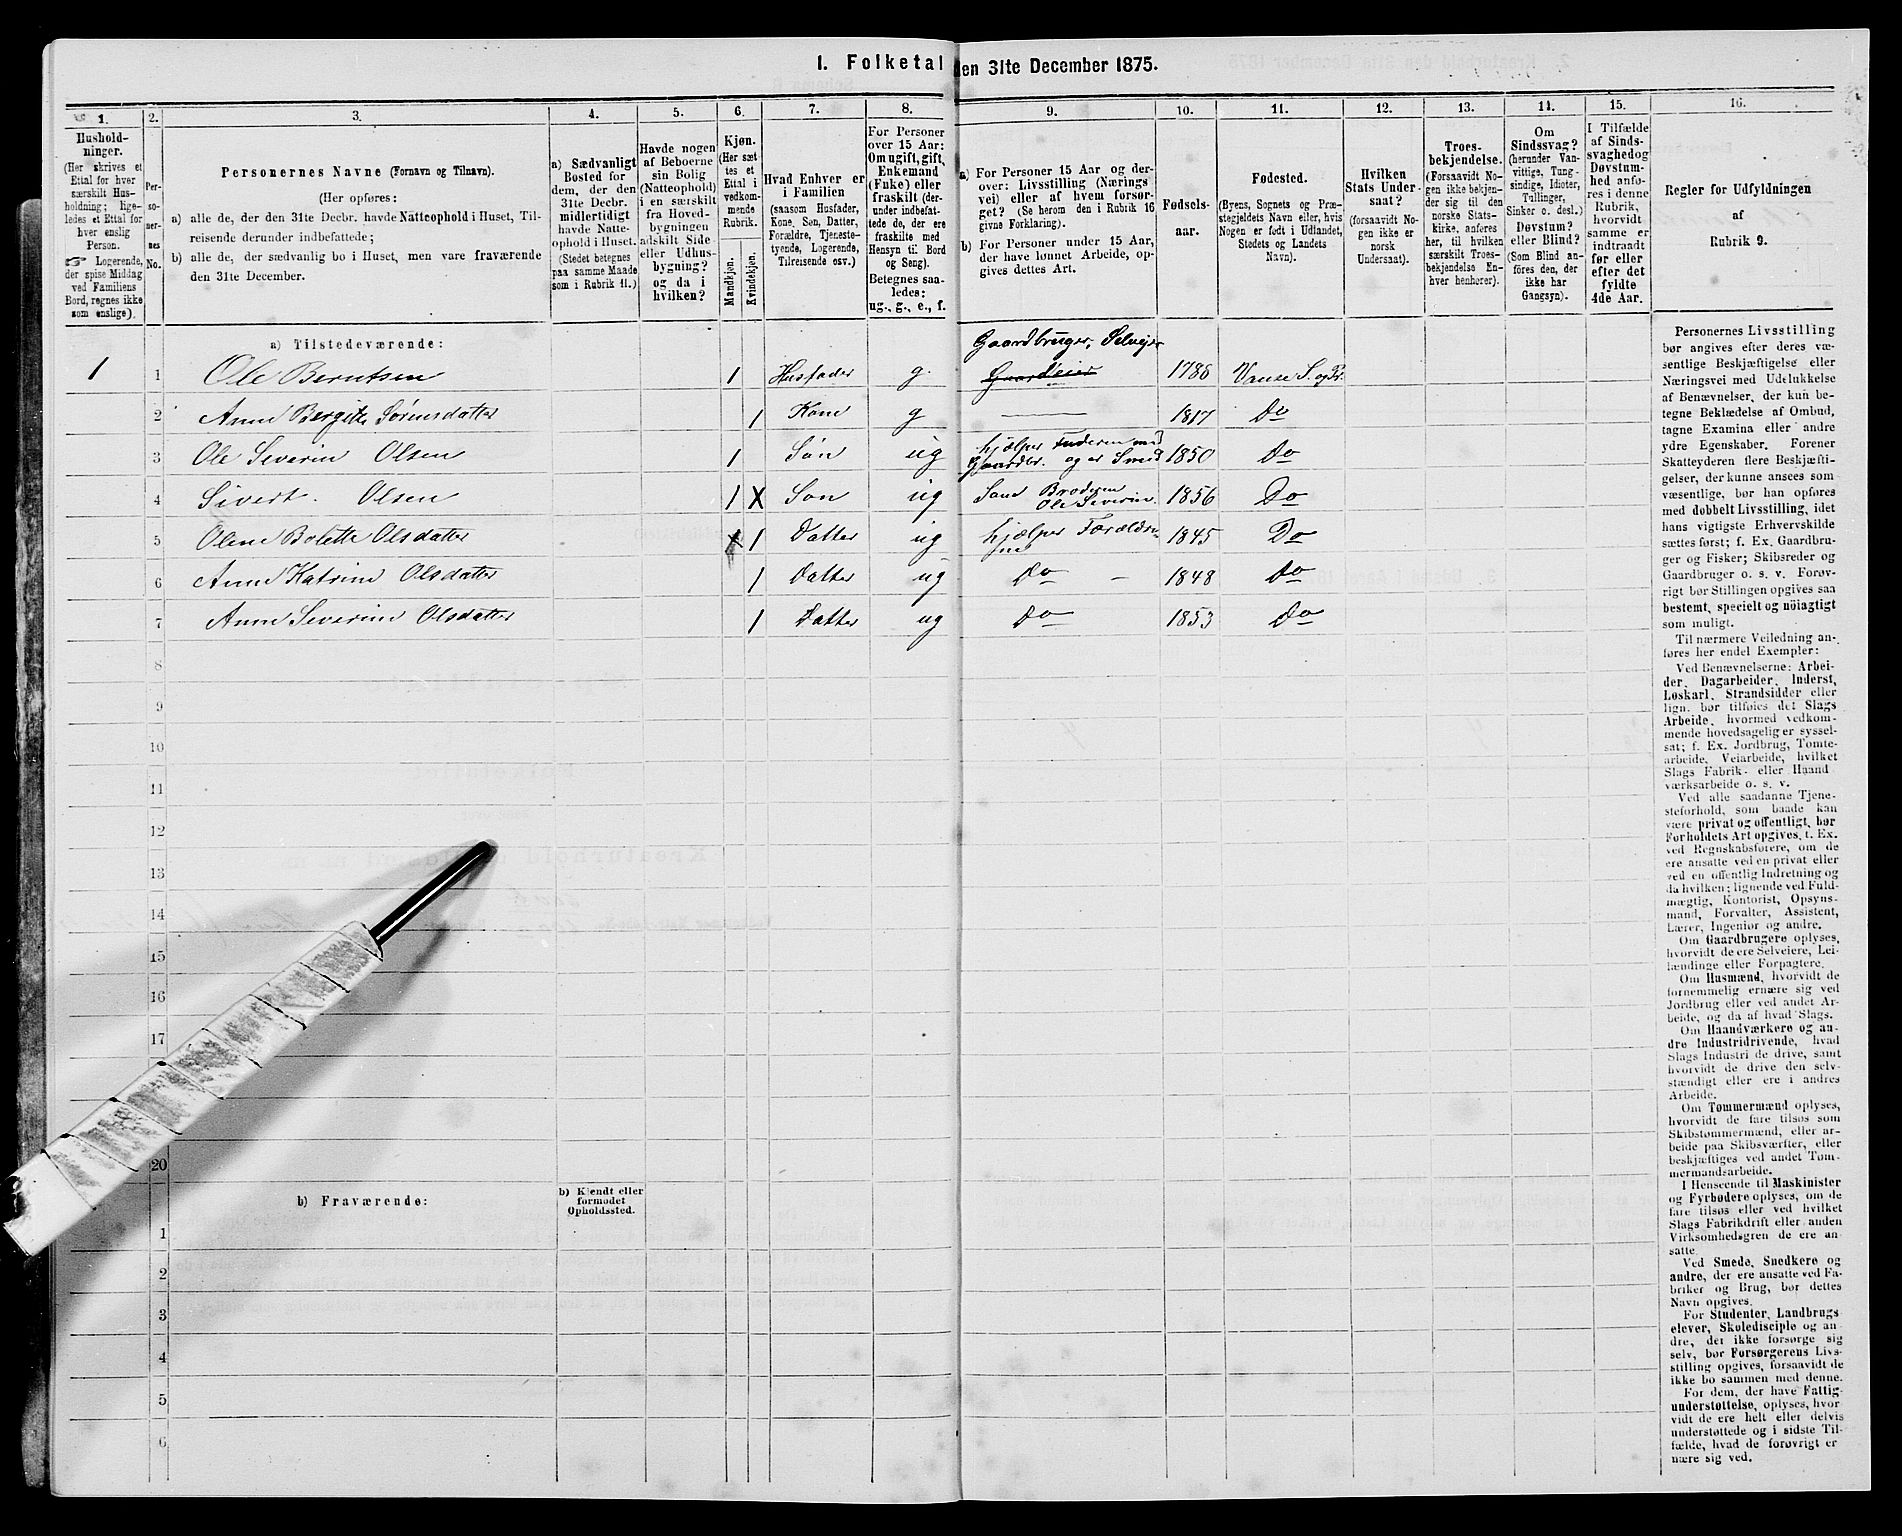 1. Folketal den 31te December 1875.
1.
Hushold-
ninger.
(Her skrives et
Ettal for hver
særskilt Hus-
holdning; lige-
ledes et Ettal for
hver enslig
Person.
☞ Logerende,
der spise Middag
ved Familiens
Bord, regnes ikke
som enslige).
2.
Per-
so-
ner-
nes
No.
3.
Personernes Navne (Fornavn og Tilnavn).
(Her opføres:
a) alle de, der den 31te Decbr. havde Natteophold i Huset, Til-
reisende derunder indbefattede;
b) alle de, der sædvanlig bo i Huset, men vare fraværende
den 31te December.
4.
a) Sædvanligt
Bosted for
dem, der den
31te Decbr.
midlertidigt
havde Natte-
ophold i Huset.
(Stedet betegnes
paa samme Maade
som i Rubrik 11.)
5.
Havde nogen
af Beboerne
sin Bolig
(Natteophold)
i en særskilt
fra Hoved-
bygningen
adskilt Side-
eller Udhus-
bygning?
og da i
hvilken?
6.
Kjøn.
(Her sæt-
tes et
Ettal i
vedkom-
mende
Rubrik.
Mandkjøn.
Kvindekjøn.
7.
Hvad Enhver er
i Familien
(saasom Husfader,
Kone, Søn, Datter,
Forældre, Tjeneste-
tyende, Logerende,
Tilreisende osv.)
8.
For Personer
over 15 Aar:
Om ugift, gift,
Enkemand
(Enke) eller
fraskilt (der-
under indbefat-
tede de, der ere
fraskilte med
Hensyn til Bord
og Seng).
Betegnes saa-
ledes:
ug., g., e., f.
9.
a) For Personer 15 Aar og der-
over: Livsstilling (Nærings-
vei) eller af hvem forsør-
get? (Se herom den i Rubrik 16
givne Forklaring).
b) For Personer under 15 Aar,
der have lønnet Arbeide, op-
gives dettes Art.
10.
Fødsels-
aar.
11.
Fødested.
(Byens, Sognets og Præ-
stegjeldets Navn eller, hvis
Nogen er født i Udlandet,
Stedets og Landets
Navn).
12.
Hvilken
Stats Under-
saat?
(forsaavidt No-
gen ikke er
norsk
Undersaat).
13.
Troes-
bekjendelse.
(Forsaavidt No-
gen ikke bekjen-
der sig til den
norske Stats-
kirke, anføres
her, til hvilken
særskilt Troes-
bekjendelse En-
hver henhører).
14.
Om
Sindssvag?
(herunder Van-
vittige, Tung-
sindige, Idioter,
Tullinger,
Sinker o. desl.)
Døvstum?
eller Blind?
(Som Blind an-
føres den, der
ikke har
Gangsyn).
15.
I Tilfælde
af Sinds-
svaghed og
Døvstum-
hed anfø-
res i denne
Rubrik,
hvorvidt
samme er
indtraadt
før eller
efter det
fyldte
4de Aar.
16.
Regler for Udfyldningen
af
Rubrik 9.
a) Tilstedeværende:
Gaardbruger, Selveier
1 1 Ole Berntsen 1 Husfader g. Gaardeier 1788 Vanse S. og Pr.
2 Anne Bergite Sörensdatter 1 Kone g 1817 Do
3 Ole Severin Olsen 1 Søn ug hjælper Faderen med
Gaardbr. og er Smed 1850 Do
4 Sivert Olsen 1 X Søn ug Som Broderen
Ole Severin. 1856 Do
5 Olene Bolette Olsdatter x 1 Datter ug hjælper Forældre-
ne 1845 Do
6 Anne Katrine Olsdatter 1 Datter ug Do 1848 Do
7 Anne Severine Olsdatter 1 Datter ug Do 1853 Do
8
9
10
11
12
13
14
15
16
17
20
b) Fraværende:
b) Kjendt eller
formodet
Opholdssted.
1
2
3
4
5
6
Personernes Livsstilling
bør angives efter deres væ-
sentlige Beskjæftigelse eller
Næringsvei med Udelukkelse
af Benævnelser, der kun be-
tegne Beklædelse af Ombud,
tagne Examina eller andre
ydre Egenskaber. Forener
Skatteyderen flere Beskjæfti-
gelser, der kunne ansees som
væsentlige, bør han opføres
med dobbelt Livsstilling, idet
hans vigtigste Erhvervskilde
sættes først; f. Ex. Gaardbru-
ger og Fisker; Skibsreder og
Gaardbruger o. s. v. Forøv-
rigt bør Stillingen opgives saa
bestemt, specielt og nöiagtigt
som muligt.
Til nærmere Veiledning an-
føres her endel Exempler:
Ved Benævnelserne: Arbei-
der, Dagarbeider, Inderst,
Løskarl, Strandsidder eller
lign. bør tilføies det Slags
Arbeide, hvormed vedkom-
mende hovedsagelig er syssel-
sat; f. Ex. Jordbrug, Tomte-
arbeide, Veiarbeide, hvilket
Slags Fabrik- eller Haand-
værksarbeide o. s. v.
Ved alle saadanne Tjene-
steforhold, som baade kan
være privat og offentligt, bør
Forholdets Art opgives, t. Ex.
ved Regnskabsførere, om de
ere ansatte ved en privat eller
ved en offentlig Indretning og
da hvilken; lignende ved Fuld-
mægtig, Kontorist, Opsyns-
mand, Forvalter, Assistent,
Lærer, Ingeniør og andre.
Om Gaardbrugere oplyses,
hvorvidt de ere Selveiere, Lei-
lændinge eller Forpagtere.
Om Husmænd, hvorvidt de
fornemmelig ernære sig ved
Jordbrug eller ved andet Ar-
beide, og da af hvad Slags.
Om Haandværkere og an-
dre Industridrivende, hvad
Slags Industri de drive, samt
hvorvidt de drive den selv-
stændigt eller ere i andres
Arbeide.
Om Tømmermænd oplyses,
hvorvidt de fare tilsøs som
Skibstømmermænd, eller ar-
beide paa Skibsværfter, eller
beskjæftiges ved andet Tøm-
mermandsarbeide.
I Henseende til Maskinister
og Fyrbødere oplyses, om de
fare tilsøs eller ved hvilket
Slags Fabrikdrift eller anden
Virksomhedsgren de ere an-
satte.
Ved Smede, Snedkere og
andre, der ere ansatte ved Fa-
briker og Brug, bør dettes
Navn opgives.
For Studenter, Landbrugs-
elever, Skoledisciple og an-
dre, der ikke forsørge sig
selv, bør Forsørgerens Livs-
stilling opgives, forsaavidt de
ikke bo sammen med denne.
For dem, der have Fattig-
understøttelse, oplyses, hvor-
vidt de ere helt eller delvis
understøttede og i sidste Til-
fælde, hvad de forøvrigt er-
nære sig ved.